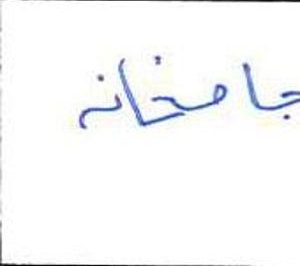 جامخانه